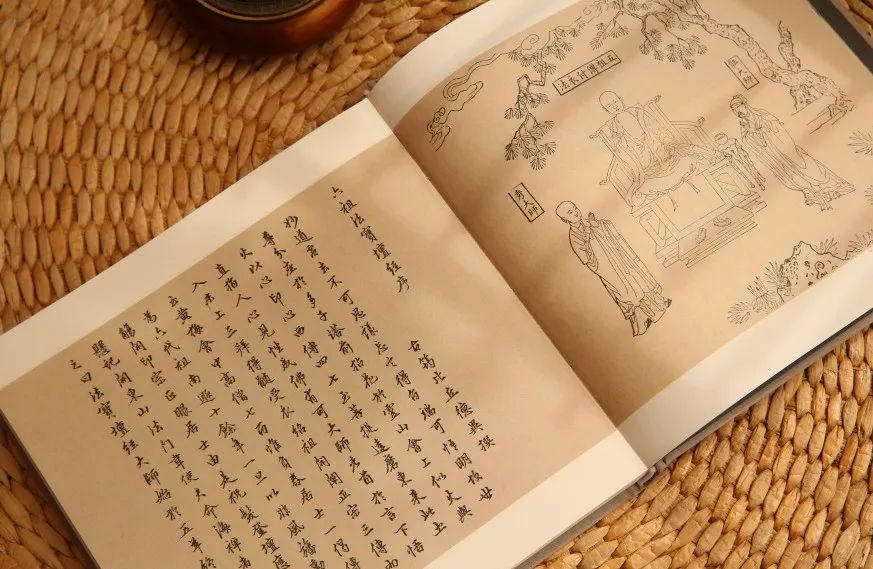 六祖法寶壇經序
古筠比丘德異撰
妙道虛玄不可思議忘言得旨端可悟明故世
尊分座於多子塔前拈花於靈山會上似火與
火以心印心西傳四七至菩提達磨東來此土
直指人心見性成佛有可大師者首於言下悟
入末上三拜得髓受衣紹祖開闡正宗三傳而
至黃梅會中高僧七百惟負舂居士一偈傳
為六代祖南遯十餘年一旦以非風旛動
觸開印宗正眼居士由是祝髮登壇應
懸記開東山法門韋使君命海禪者
之曰法寶壇經大師始於五羊終
五祖傳付衣法
大師
秀大師